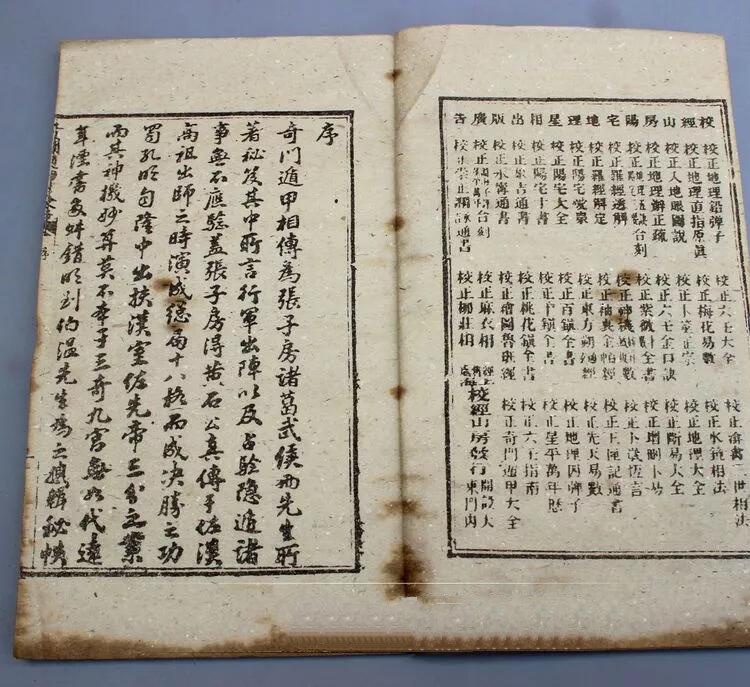 校經山房陽宅地理星相出版廣告
校正地理鉛彈子
校正地理直指原真
校正人地眼圖說
校正地理辨正疏
校正羅經透解
校正羅經解定
校正陽宅愛眾
校正陽宅大全
校正陽宅十書
校正象吉通書
校正永寧通書
校正六壬大全
校正梅花易數
校正卜筮正宗
校正六壬金口訣
校正紫微數全書
校正東方朔通經
校正百鎮全書
校正桃花鎮全書
校正繪圖魯班經
校正麻衣相
校正柳莊相
校正水鏡相法
校正地理大全
校正斷易大全
校正增刪卜易
校正玉匣記通書
校正先天易數
校正地理四彈子
校正星平萬年曆
校正六壬指南
校正奇門遁甲大全
校經山房發行 開設大東門內
序
奇門遁甲相傳為張子房諸葛武侯兩先生所
著秘笈其中所言行軍出陣以及占驗隱遁諸
事無不應驗蓋張子房得黃石公真傳于佐漢
高祖出師之時演成總局十八格而成決勝之功
蜀孔明自隆中出扶漢室佐先帝三分之業
而其神機妙算莫不本于三奇九宮無如代遠
年湮書多舛錯明劉伯溫先生為之搜輯秘帙